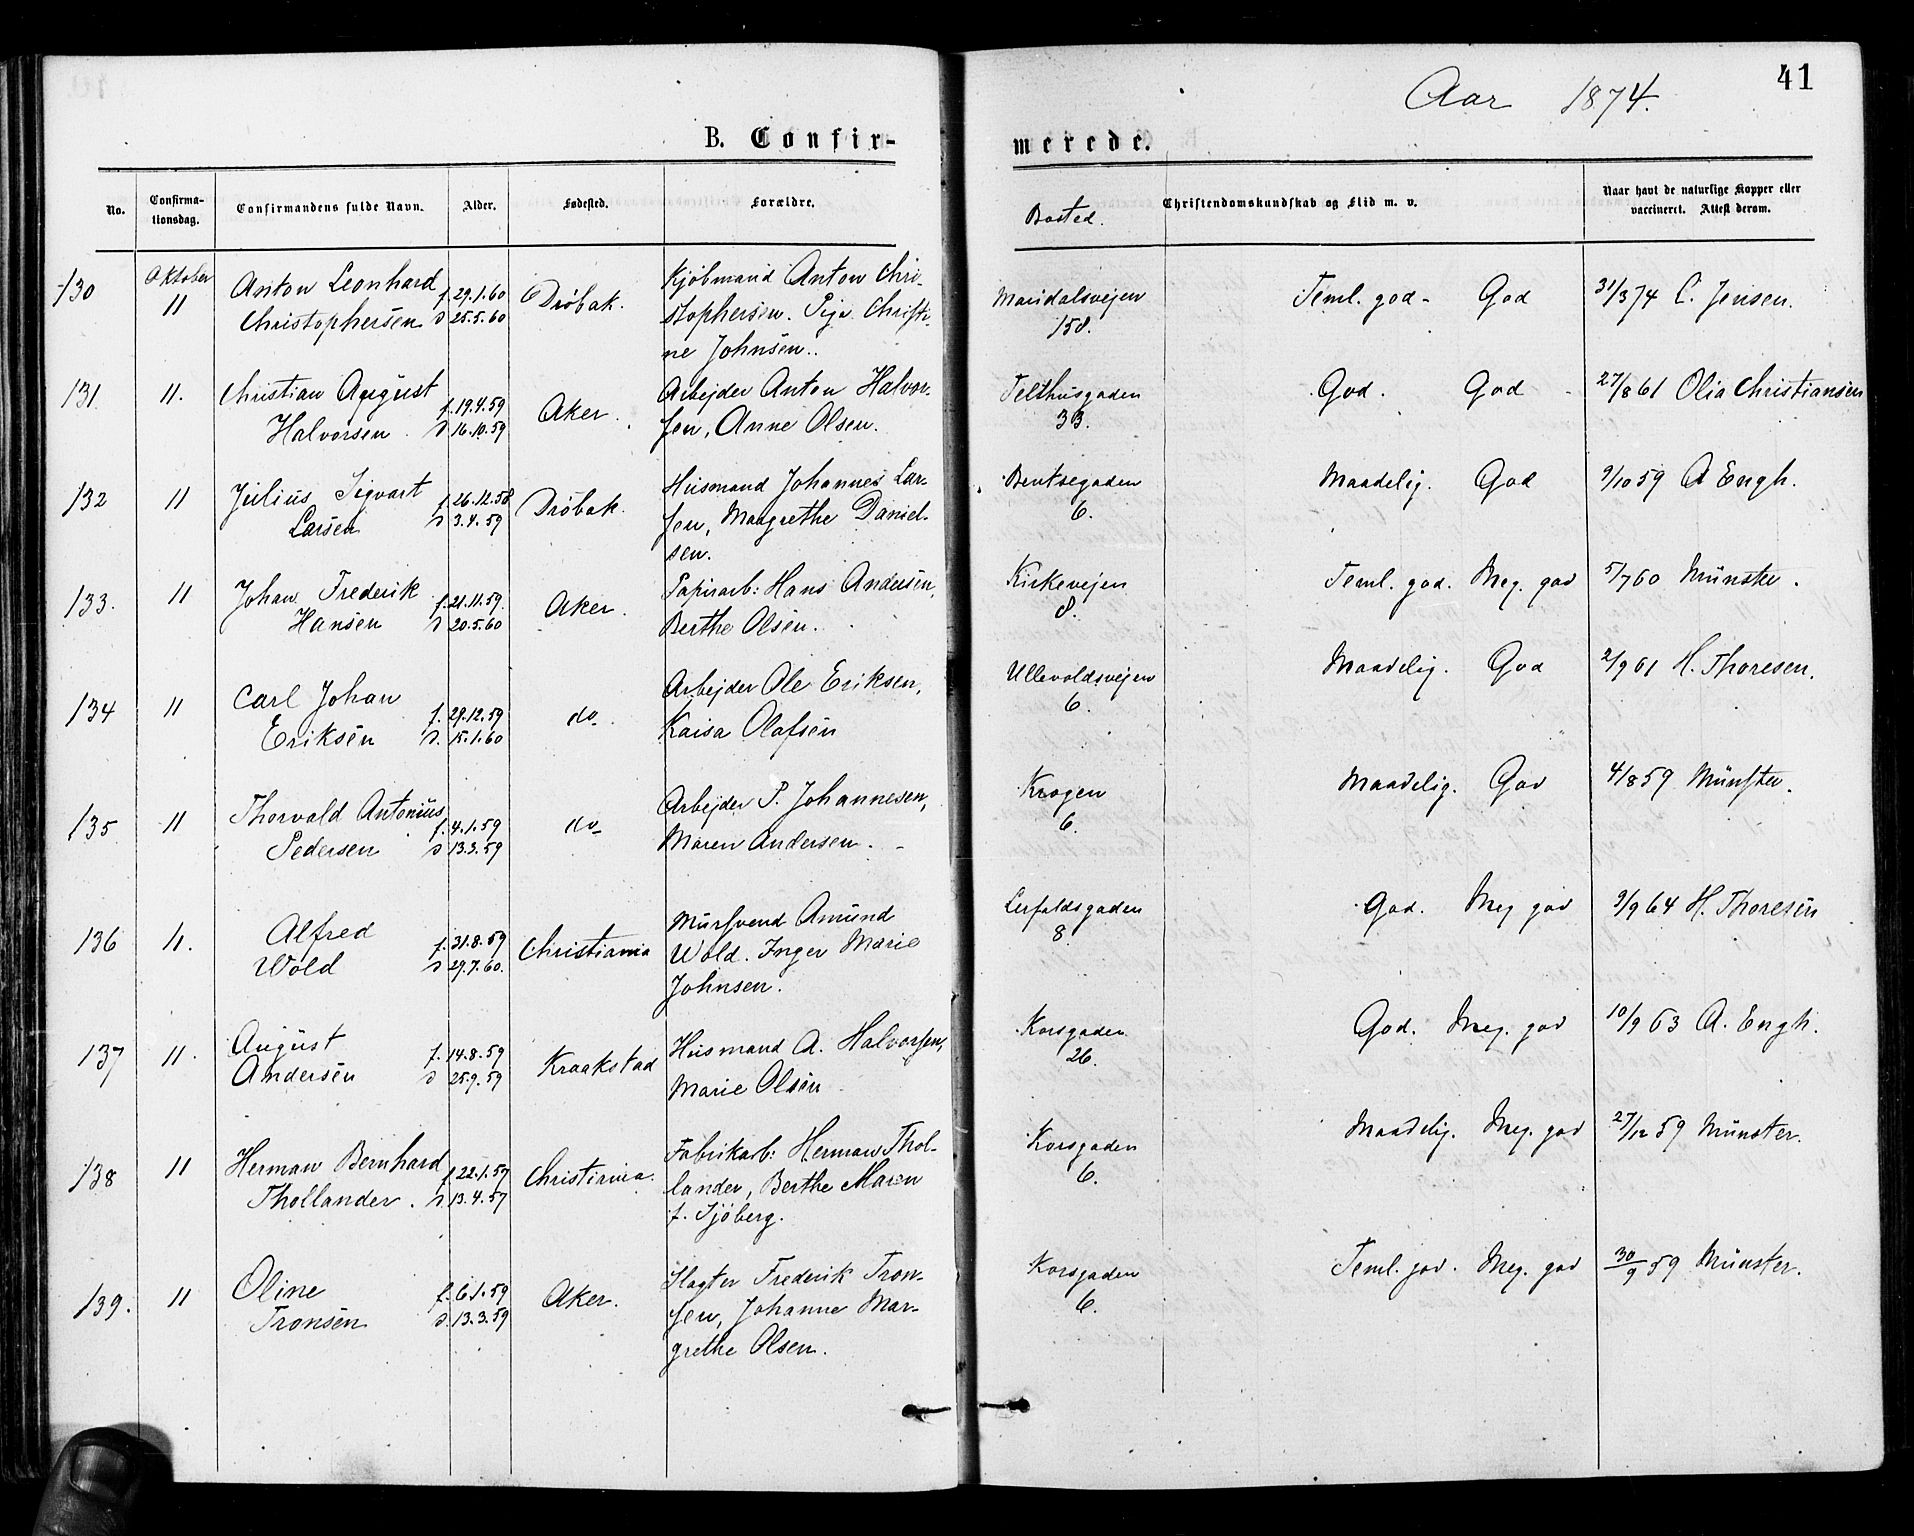 41
Aar 1874.
B. Confir-
merede.
No.
Confirma-
tionsdag.
Confirmandens fulde Navn.
Alder.
Fødested.
Forældre.
Bosted.
Christendomskundskab og Flid m. v.
Naar havt de naturlige Kopper eller
vaccineret. Attest derom.
130 Oktober Anton Leonhard f. 29.1.60 Drøbak. Kjøbmand Anton Chri- Maridalsvejen Teml. god - God 31/3 74 C. Jensen.
11 Christophersen d 25.5.60 stophersen. Pige Christi- 158.
ne Johnsen..
131. 11. Christian August f. 19.4.59 Aker. Arbejder Anton Halvor- Telthusgaden God. God - 27/8 61 Olia Christiansen
Halvorsen. d 16.10.59 sen, Anne Olsen. 33.
132 11 Julius Sigvart f. 26.12.58 Drøbak. Husmand Johannes Lar- Bentsegaden Maadelig. God 9/10 59 A Engh.
Larsen d 3.4.59 sen, Maagrethe Daniel- 6.
sen.
133. 11 Johan Frederik f. 21.11.59. Aker. Papirarb: Hans Andersen, Kirkevejen Teml. god. Meg. god 5/7 60 Münster.
Hansen d 20.5.60 Berthe Olsen. 8.
134 11 Carl Johan f. 29.12.59 do. Arbejder Ole Eriksen, Ullevoldsvejen Maadelig. God 2/9 61 H. Thoresen.
Eriksen d. 15.1.60 Kaisa Olafsen 6.
135 11 Thorvald Antonius f. 4.1.59 do Arbejder P. Johannesen, Krogen Maadelig. God 4/8 59 Münster.
Pedersen d 13.3.59 Maren Andersen. - 6.
136 11. Alfred f. 31.8.59 Christiania Mursvend Amund Lerfaldsgaden God. Meg god 9/9 64 H. Thoresen
Wold d 29.7.60. Wold. Inger Marie 8.
Johnsen.
137 11. August f. 14.8.59 Kraakstad Husmand A. Halvorsen, Korsgaden God. Meg. god 10/9 63 A. Engh.
Andersen d 25.9.59 Marie Olsen 26.
138 11 Herman Bernhard f. 22.1.57 Christiania. Fabrikarb: Herman Thol- Korsgaden Maadelig. Meg. god 27/12 59 Münster.
Thollander. d. 13.4.57 lander, Berthe Maren 6.
f. Sjöberg.
139. 11 Oline f. 6.1.59 Aker. Slagter Frederik Tron- Korsgaden Teml. god. Meg. god 30/9 59 Münster.
Tronsen d. 13.3.59 sen, Johanne Mar- 6.
grethe Olsen.